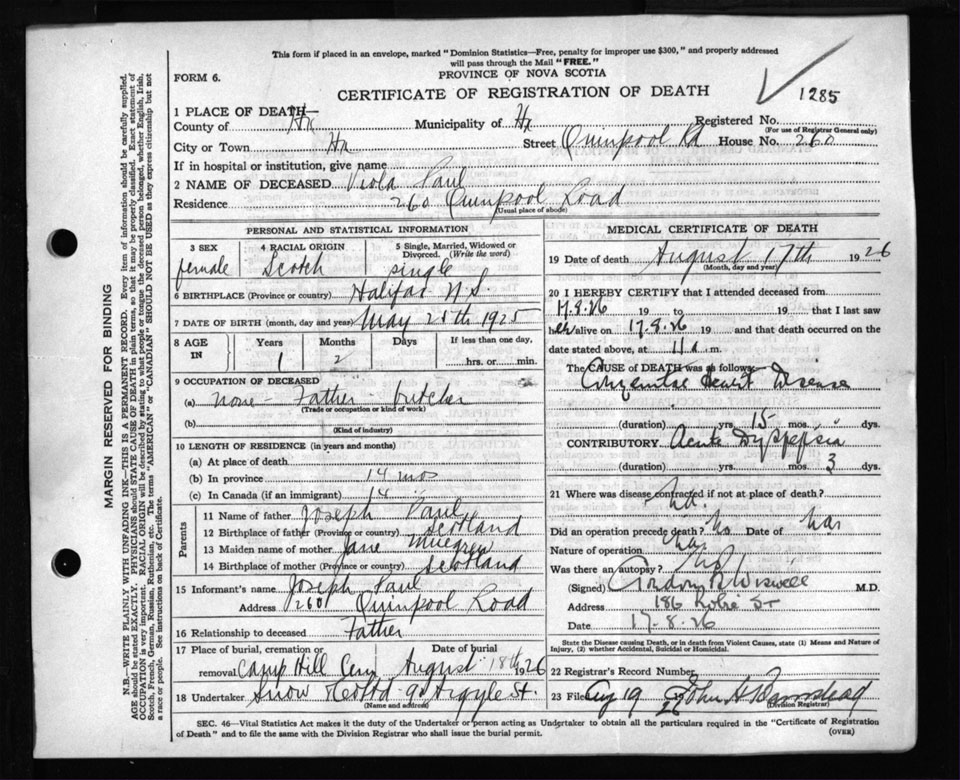 This form if placed in an envelope, marked "Dominion Statistics—Free, penalty for improper use $300," and properly addressed
will pass through the Mail "FREE."
FORM 6.
PROVINCE OF NOVA SCOTIA
CERTIFICATE OF REGISTRATION OF DEATH
1285
1 PLACE OF DEATH
County of Hx Municipality of Hx Registered No.
(For use of Registrar General only)
City or Town Hx Street Quinpool Rd House No. 260
If in hospital or institution, give name
2 NAME OF DECEASED Viola Paul
Residence 260 Quinpool Road
(Usual place of abode)
PERSONAL AND STATISTICAL INFORMATION
3 SEX 4 RACIAL ORIGIN 5 Single, Married, Widowed or
Divorced. (Write the word)
female Scotch single
6 BIRTHPLACE (Province or country) Halifax N.S.
7 DATE OF BIRTH (month, day and year) May 28th 1925
8 AGE IN Years Months Days If less than one day,
1 2 hrs. or min.
9 OCCUPATION OF DECEASED
(a) none - Father butcher
(Trade or occupation or kind of work)
(b)
(Kind of industry)
10 LENGTH OF RESIDENCE (in years and months)
(a) At place of death
(b) In province 14 mos
(c) In Canada (if an immigrant) 14
Parents
11 Name of father Joseph Paul
12 Birthplace of father (Province or country) Scotland
13 Maiden name of mother Jane
14 Birthplace of mother (Province or country) Scotland
15 Informant's name Joseph Paul
Address 260 Quinpool Road
16 Relationship to deceased Father
17 Place of burial, cremation or Date of burial
removal Camp Hill Cem August 18th 1926
18 Undertaker Snow & Co Ltd - 90 Argyle St.
(Name and address)
MEDICAL CERTIFICATE OF DEATH
19 Date of death August 17th 1926
(Month, day and year)
20 I HEREBY CERTIFY that I attended deceased from
17.8.26 19 to 19 that I last saw
her alive on 17.8.26 19 and that death occurred on the
date stated above, at 11 a m.
The CAUSE of DEATH was as follows:
Congenital Heart Disease
(duration) yrs. 15 mos. dys.
CONTRIBUTORY Acute Dyspepsia
(duration) yrs. mos. 3 dys.
21 Where was disease contracted if not at place of death?
Did an operation precede death? No Date of
Nature of operation
Was there an autopsy? No
(Signed) Gordon B Wiswell M.D.
Address 186 Robie St
Date 17-8.26
State the Disease causing Death, or in death from Violent Causes, state (1) Means and Nature of
Injury, (2) whether Accidental, Suicidal or Homicidal.
22 Registrar's Record Number
23 Filed Aug 19 1926 John A Barnstead
(Division Registrar)
SEC. 46—Vital Statistics Act makes it the duty of the Undertaker or person acting as Undertaker to obtain all the particulars required in the "Certificate of Registration
of Death" and to file the same with the Division Registrar who shall issue the burial permit.
(OVER)
MARGIN RESERVED FOR BINDING
N.B.—WRITE PLAINLY WITH UNFADING INK—THIS IS A PERMANENT RECORD. Every item of information should be carefully supplied.
AGE should be stated EXACTLY. PHYSICIANS should STATE CAUSE OF DEATH in plain terms, so that it may be properly classified. Exact statement of
OCCUPATION is very important. RACIAL ORIGIN will be described by stating to what people or tongue the deceased person belonged, whether English, Irish,
Scotch, French, German, Russian, Ruthenian, etc. The terms "AMERICAN" or "CANADIAN" SHOULD NOT BE USED as they express citizenship but not
a race or people. See instructions on back of Certificate.